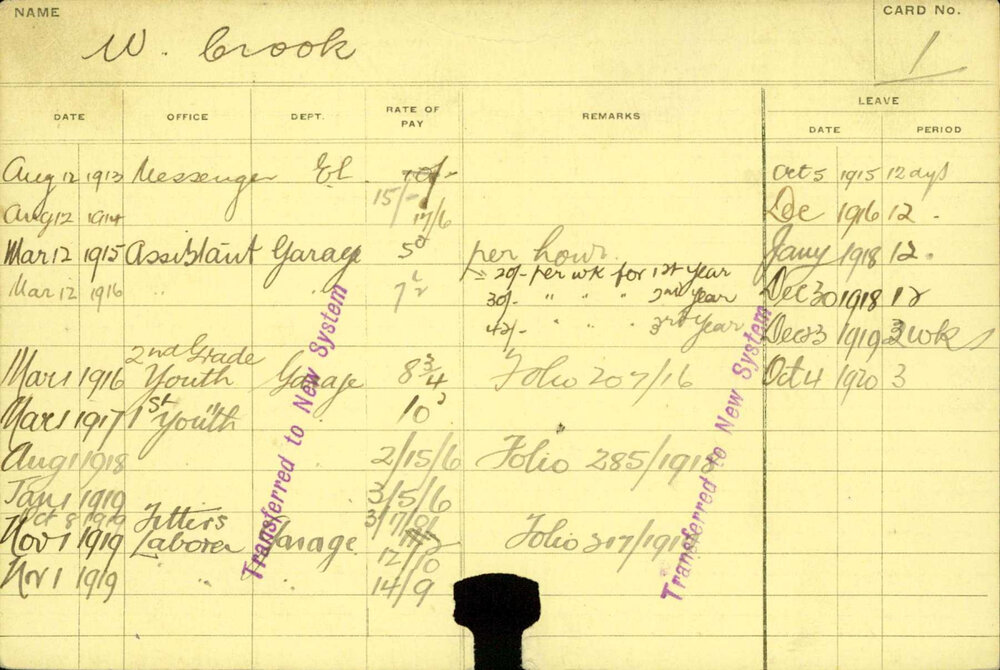 NAME
W. Crook
CARD No.
1
DATE OFFICE DEPT. RATE OF PAY REMARKS LEAVE
DATE PERIOD
Aug 12 1913 Messenger El 10/- Oct 5 1915 12 days
15/-
Aug 12 1914 17/6 De 1916 12 .
Mar 12 1915 Assistant Garage 5d per hour Jany 1918 12.
20/- per wk for 1st Year
Mar 12 1916 " " 7½ 30/- " " " 2nd Year Dec 30 1918 12
42/- " " " 3rd Year Dec 23 1919 3 wks
2nd Grade
Mar 1 1916 Youth Garage 8¾ Folio 207/16 Oct 4 1920 3
Mar 1 1917 1st " Youth 10
Aug 1 1918 2/15/6 Folio 285/1918
Jan 1 1919 3/5/6
Oct 8 1919 Fitters 3/7/8½
Nov 1 1919 Laborer Garage Folio 317/191
12/10
Nov 1 1919 " " 14/9
Transferred to New System
Transferred to New System